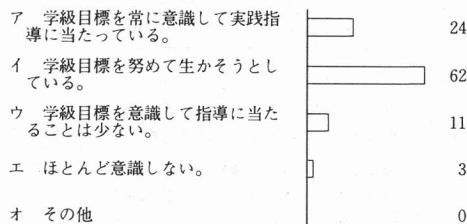 ア 学級目標を常に意識して実践指
導に当たっている。
24
イ 学級目標を努めて生かそうとし
ている。
62
ウ 学級目標を意識して指導に当た
ることは少ない。
11
エ ほとんど意識しない。
3
オ その他
0